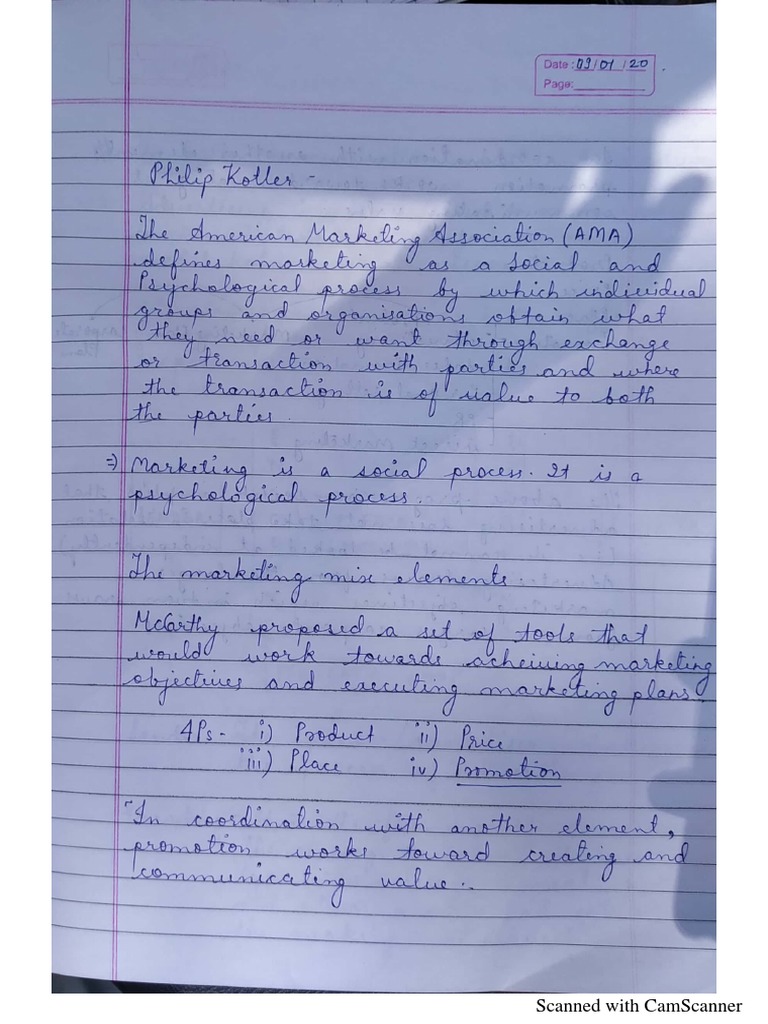 Date : 09/01/20
Page:
Philip Kotler -
The American Marketing Association (AMA)
defines marketing as a social and
Psychological process by which individual
groups and organisations obtain what
they need or want through exchange
or transaction with parties and where
the transaction is of value to both
the parties.
=> Marketing is a social process. It is a
psychological process.
The marketing mix elements
McCarthy proposed a set of tools that
would work towards acheiving marketing
objectives and executing marketing plans.
4Ps - i) Product ii) Price
iii) Place iv) Promotion
"In coordination with another element,
promotion works toward creating and
communicating value..
Scanned with CamScanner